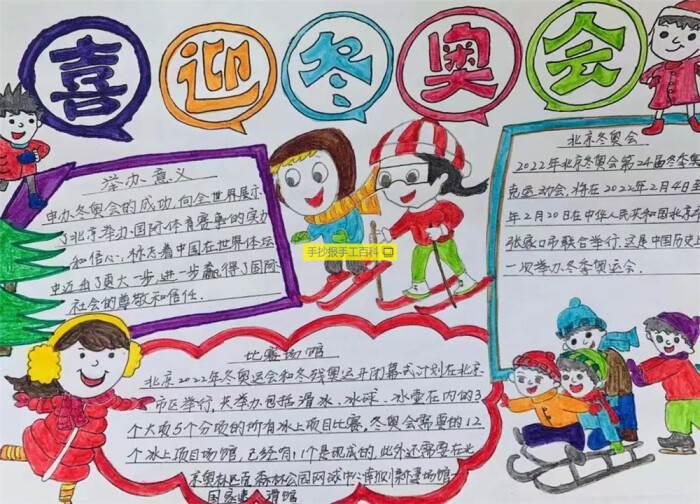 喜迎冬奥会
举办意义
申办冬奥会的成功,向全世界展示
了北京举办国际体育赛事的实力
和信心,标志着中国在世界体坛
中迈出了更大一步,进一步赢得了国际
社会的尊敬和信任.
手抄报手工百科
北京冬奥会
2022年北京冬奥会第24届冬季奥
克运动会,将在2022年2月4日至
年2月20日在中华人民共和国北京市
张家口市联合举行.这是中国历史上
一次举办冬季奥运会.
比赛场馆
北京2022年冬奥运会和冬残奥运开闭幕式计划在北京
市区举行,共举办包括滑冰、冰球、冰壶在内的3
个大项5个分项的所有冰上项目比赛,冬奥会需要的12
个冰上项目场馆,已经有11个是现成的,此外还需要在北
京奥林匹克森林公园网球中心附近新建场馆
国家速滑馆